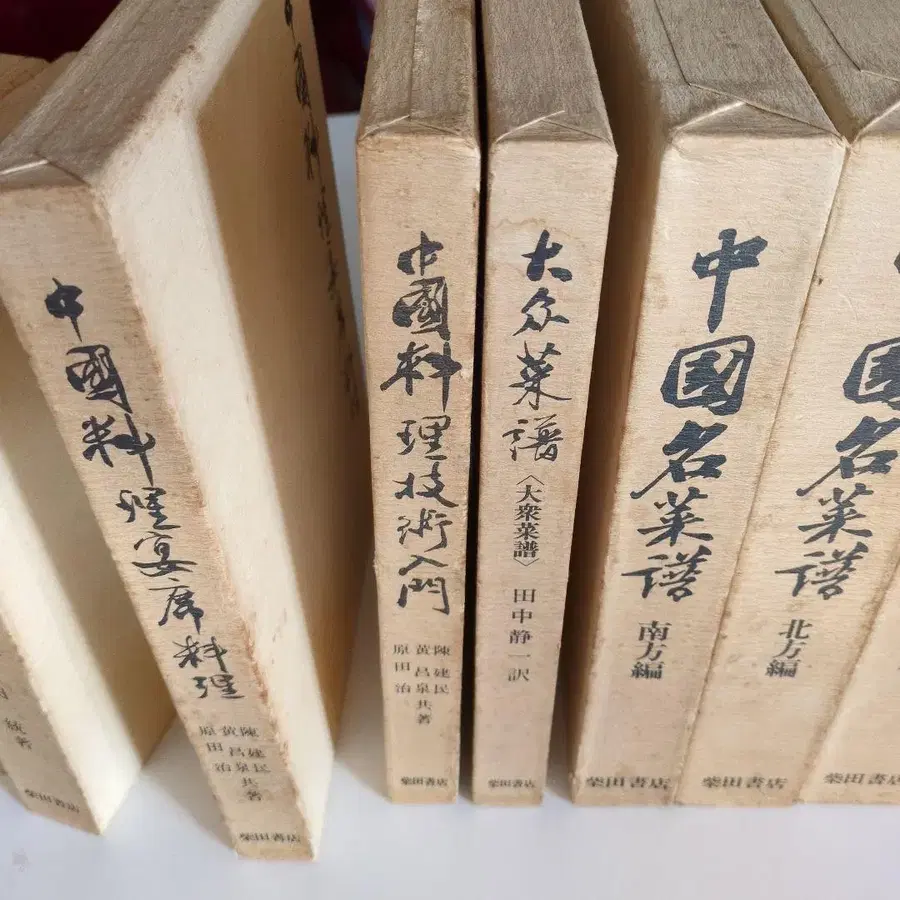 柴田書店
中國料理宴席料理
陳建民
黄昌泉共著
原田治
柴田書店
中國料理技術入門
陳建民
黄昌泉共著
原田治
柴田書店
大众菜谱
〈大衆菜譜〉
田中静一訳
柴田書店
中国名菜谱
南方編
柴田書店
国名菜谱
北方編
柴田書店
柴田書店